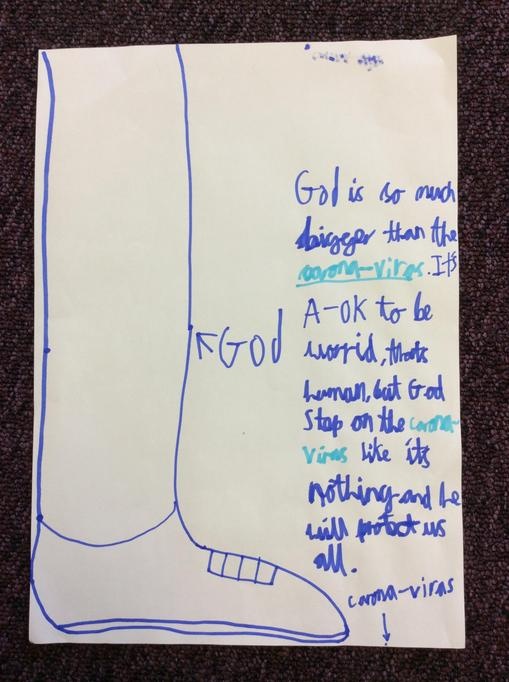 God is so much
bigger than the
carona-viras. It's
A-OK to be
worrid, thats
human, but God
Step on the carona-
viras like its
nothing and he
will protect us
all.
God
carona-viras